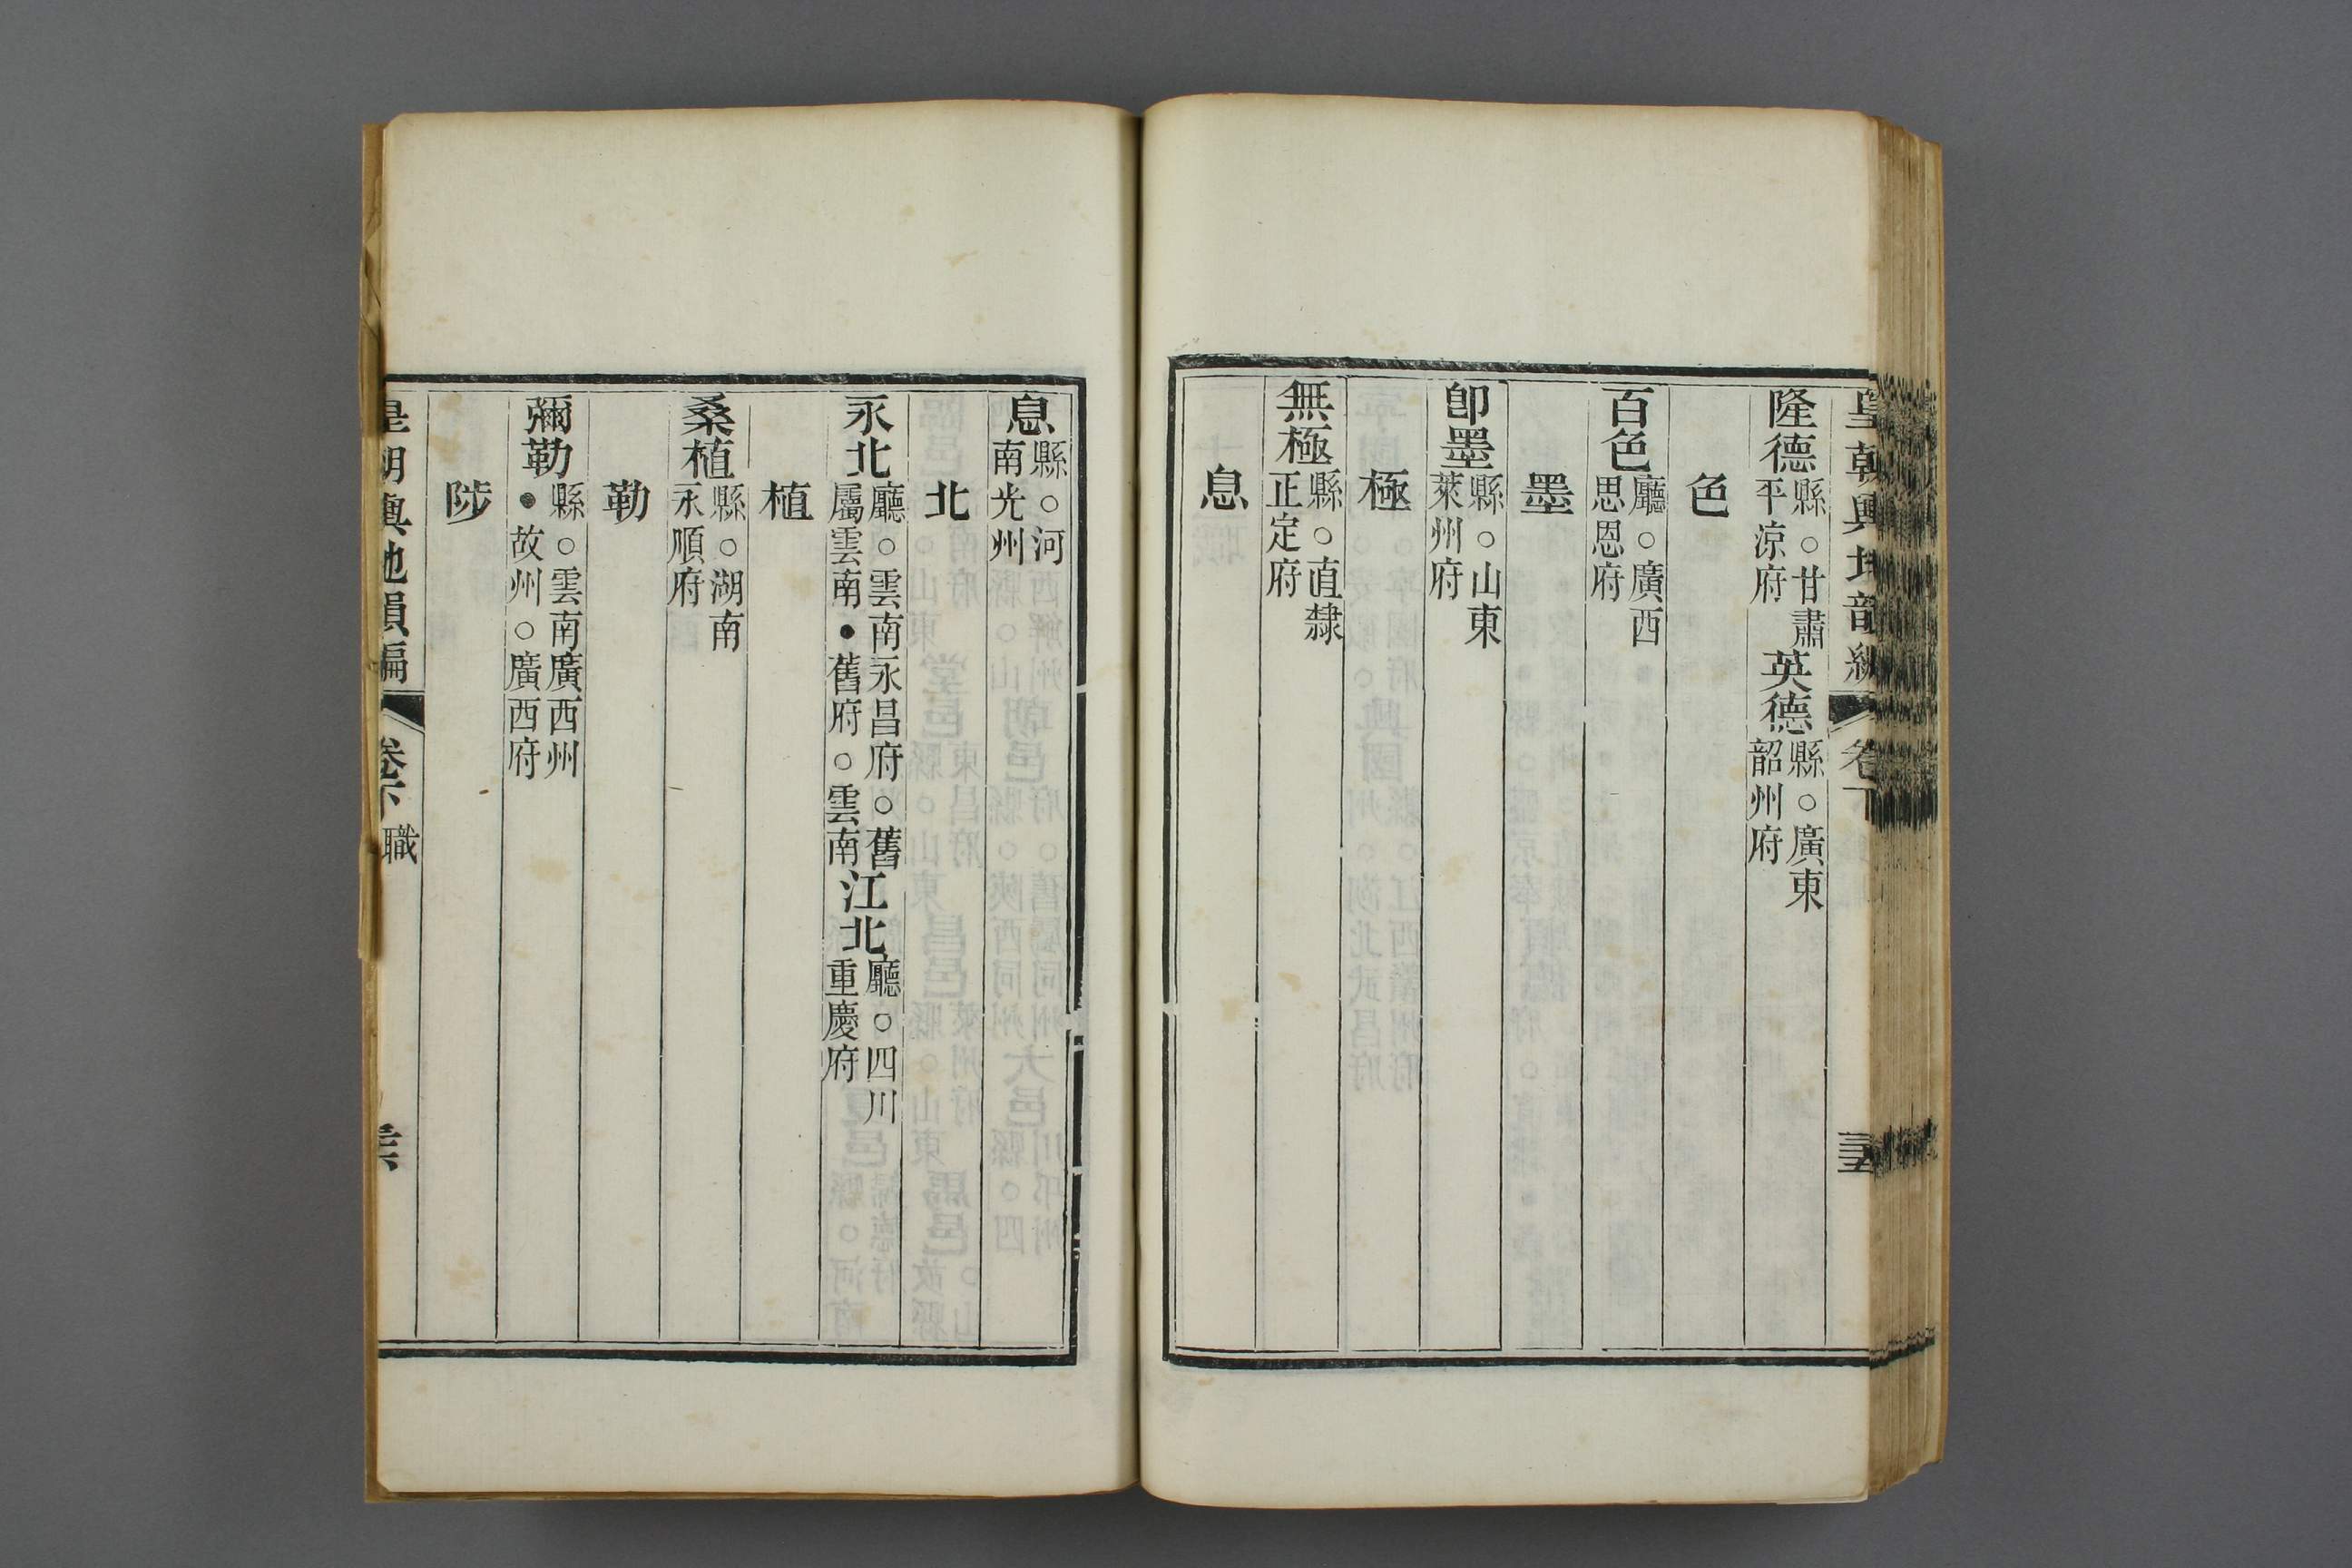 皇朝輿地韻編 卷下
隆德縣○甘肅平涼府 英德縣○廣東韶州府
色
百色廳○廣西思恩府
墨
卽墨縣○山東萊州府
極
無極縣○直隸正定府
息
息縣○河南光州
北
永北廳○雲南永昌府○舊屬雲南●舊府○雲南 江北廳○四川重慶府
植
桑植縣○湖南永順府
勒
彌勒縣○雲南廣西州●故州○廣西府
陟
皇朝輿地韻編 卷下 職